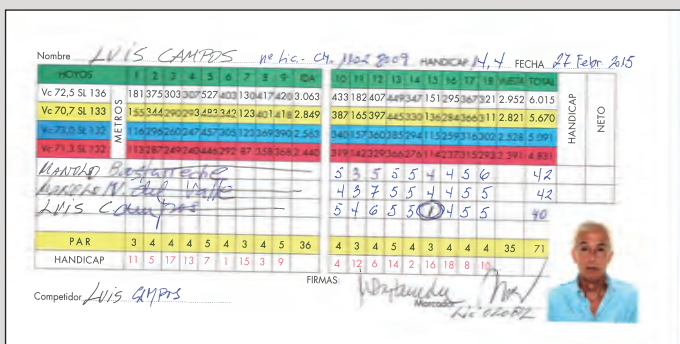 Nombre LUIS CAMPOS nº Lic. HANDICAP 14,4 FECHA 27 Febr 2015
HOYOS 1 2 3 4 5 6 7 8 9 IDA 10 11 12 13 14 15 16 17 18 VUELTA TOTAL HANDICAP NETO
METROS
Vc 72,5 SL 136 181 375 303 307 527 403 130 417 420 3.063 433 182 407 449 347 151 295 367 321 2.952 6.015
Vc 70,7 SL 133 155 344 290 293 483 342 123 401 418 2.849 387 165 397 445 330 136 284 366 311 2.821 5.670
Vc 73,0 SL 132 116 296 260 247 457 305 123 369 390 2.563 340 157 360 385 294 115 259 316 302 2.528 5.091
Vc 71,3 SL 132 113 287 249 240 446 292 87 358 368 2.440 319 142 329 366 276 114 237 315 293 2.391 4.831
MANOLO 5 3 5 5 5 4 4 5 6 42
del Valle 4 3 7 5 5 4 4 5 5 42
LUIS Campos 5 4 6 5 5 1 4 5 5 40
PAR 3 4 4 4 5 4 3 4 5 36 4 3 4 5 4 3 4 4 4 35 71
HANDICAP 11 5 17 13 7 1 15 3 9 4 12 6 14 2 16 18 8 10
FIRMAS:
Competidor LUIS CAMPOS Marcador
Lic